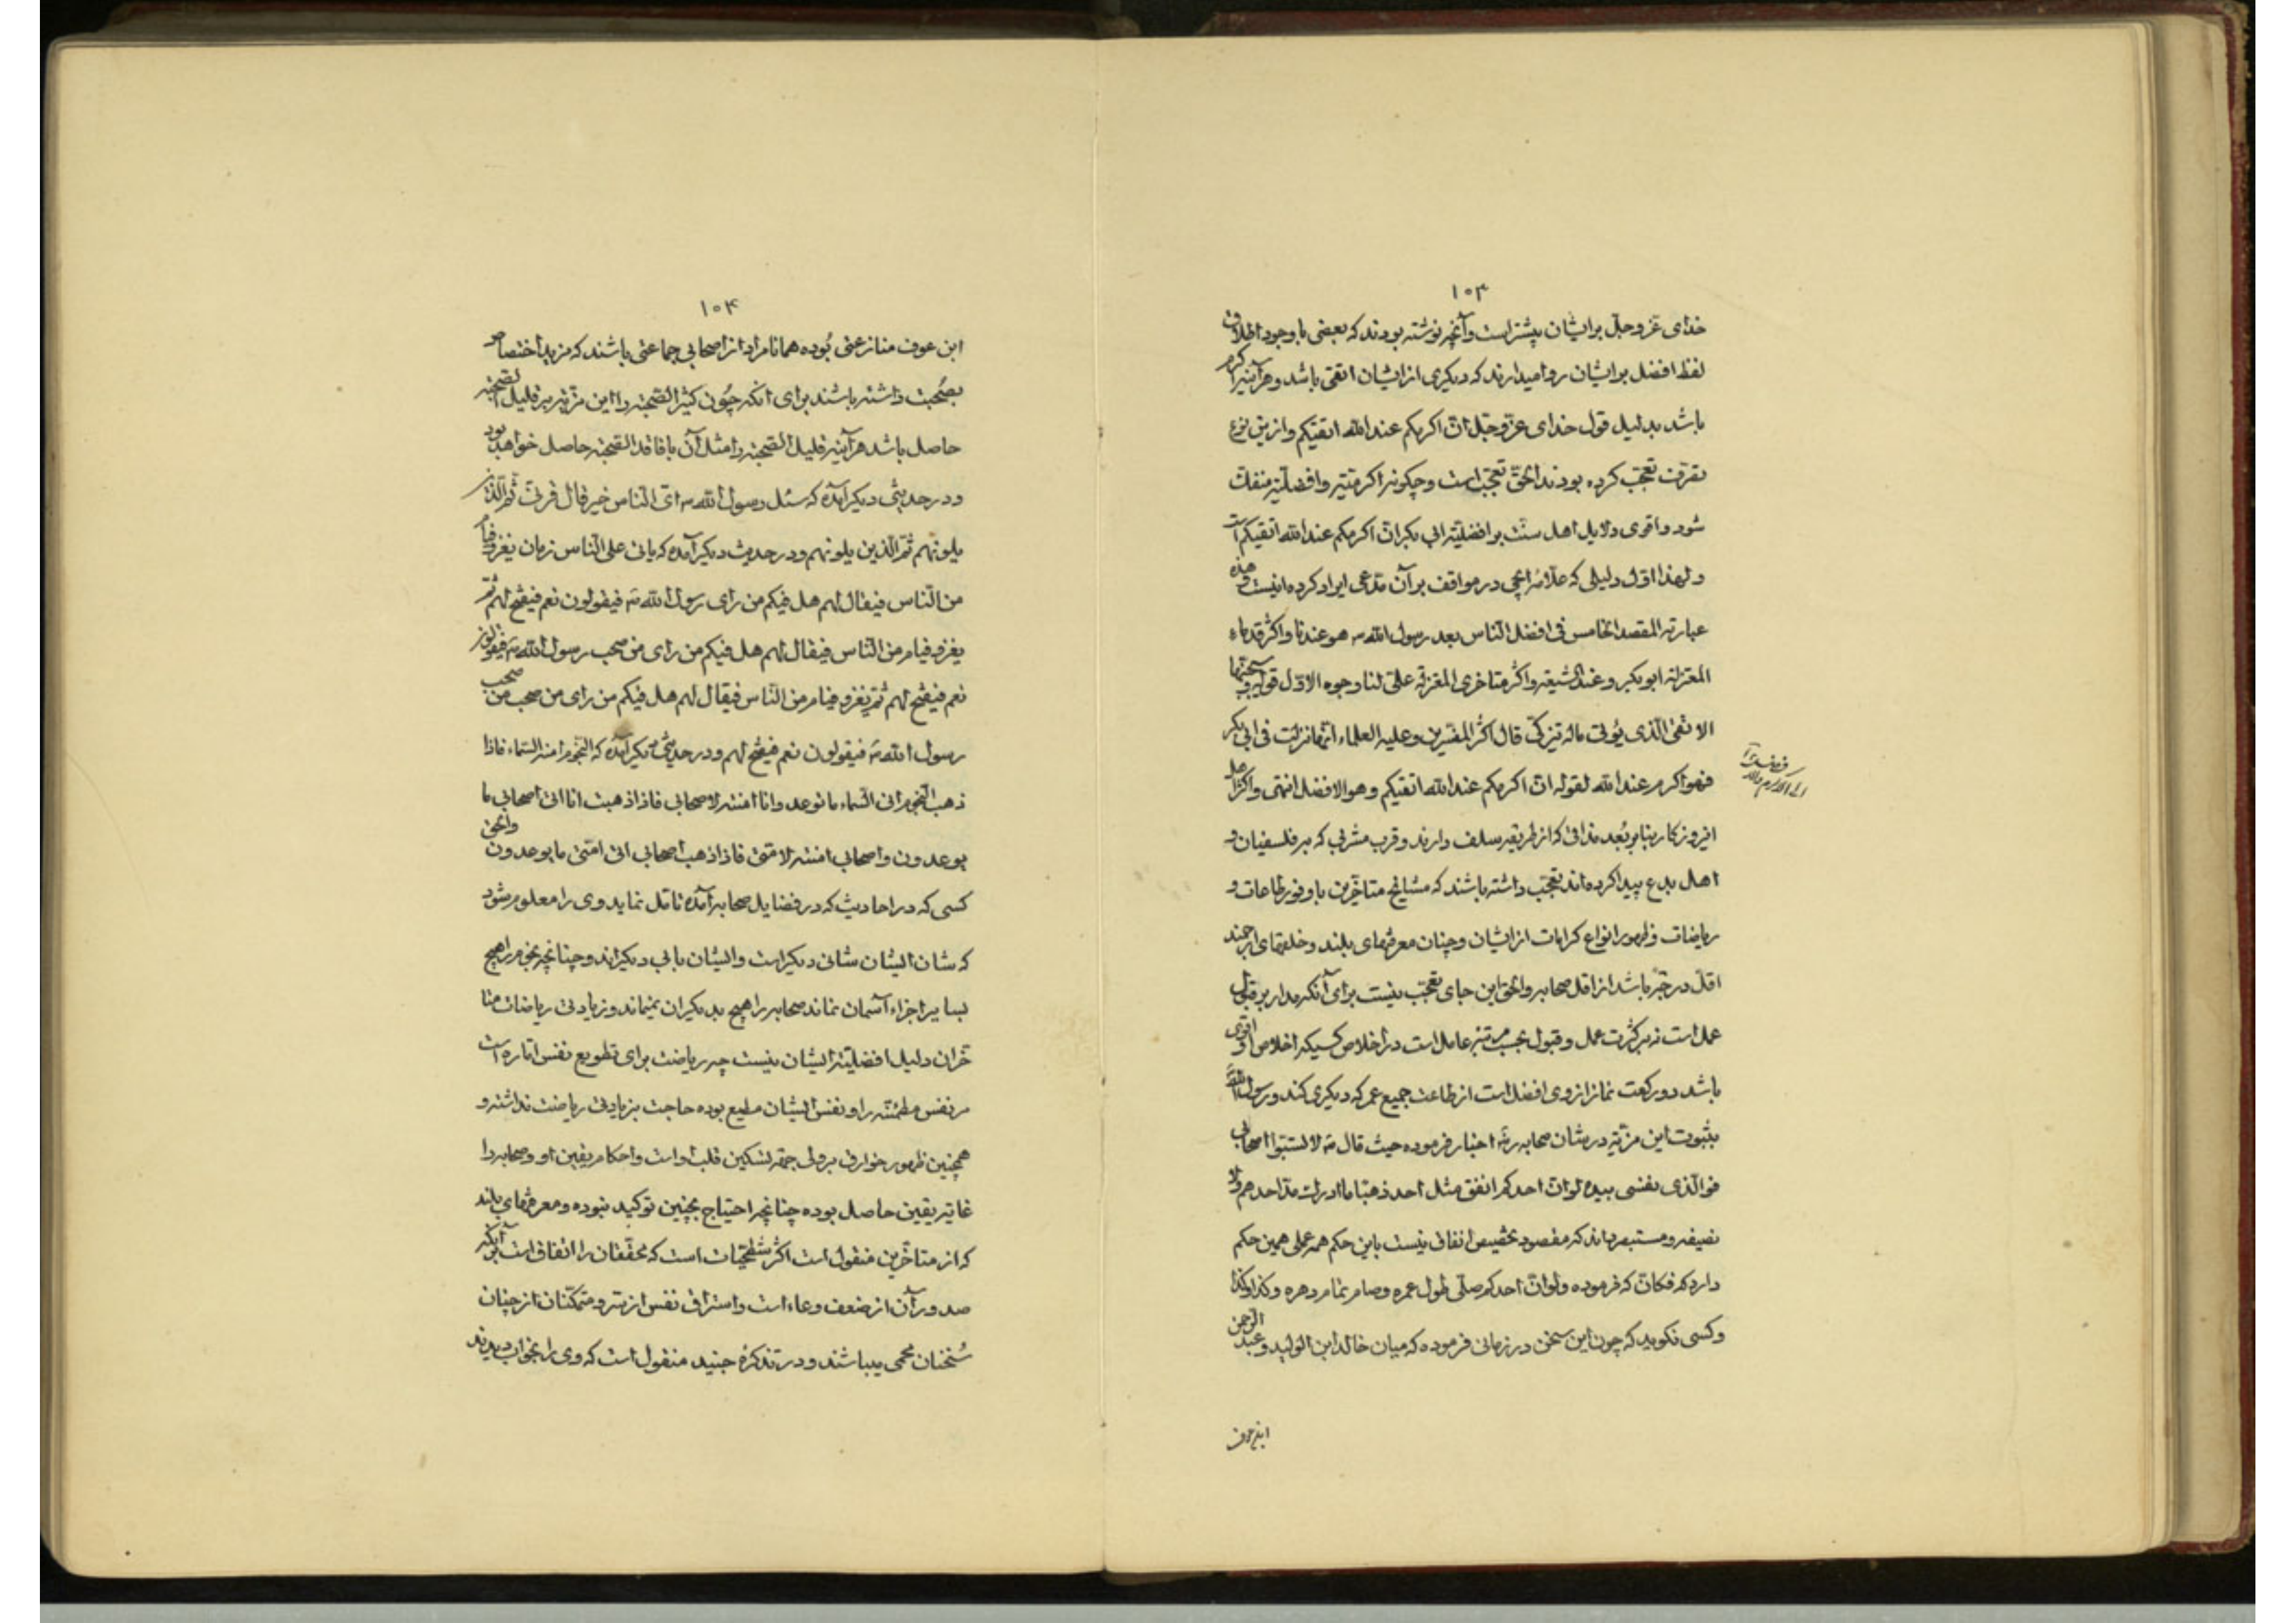 ۱۰۳
خدای عزوجل بر ایشان بیشتر است و آنچه نوشته بودند که بعضی با وجود اطلاق
لفظ افضل بر ایشان روا میدارند که دیکری از ایشان اتقی باشد و هرآینه اکرم
باشد بدلیل قول خدای عزوجل ان اکرمکم عند الله اتقیکم و ازین نوع
تفرقت تعجب کرده بودند الحق تعجب است و چکونه اکرمتیه و افضلیة منفک
شود و اقوی دلایل اهل سنت بر افضلیة ابی بکر ان اکرمکم عند الله اتقیکم است
و لهذا اول دلیلی که علامه ایجی در مواقف بر آن مدعی ایراد کرده اینست و هذه
عبارته المقصد الخامس فی افضل الناس بعد رسول الله ص هو عندنا و اکثر قدماء
المعتزلة ابوبکر و عند الشیعة و اکثر متاخری المعتزلة علی لنا وجوه الاول قوله و سیجنبها
الاتقی الذی یؤتی ماله یتزکی قال اکثر المفسرین و علیه العلماء انها نزلت فی ابی بکر
فهو اکرم عند الله لقوله ان اکرمکم عند الله اتقیکم و هو الافضل انتهی و اکثر اهل
این روزکار بنا بر بُعد مذاقی که از طریقه سلف دارند و قرب مشربی که بر فلسفیان و
اهل بدع پیدا کرده اند تعجب داشته باشند که مشایخ متاخرین با وفور طاعات و
ریاضات و ظهور انواع کرامات از ایشان و چنان معرفتهای بلند و خلقهای ارجمند
اقل درجةً باشد از اقل صحابه و الحق این جای تعجب نیست برای آنکه مدار بر قبول
عمل است نه بر کثرت عمل و قبول بحسب مرتبه عامل است در اخلاص کسیکه اخلاص او اقوی
باشد دو رکعت نماز از وی افضل است از طاعت جمیع عمر که دیکری کند و رسول الله ص
بثبوت این مزیة در شان صحابه رض اخبار فرموده حیث قال ص لا تسبوا اصحابی
فوالذی نفسی بیده لو ان احدکم انفق مثل احد ذهبا ما ادرک مد احدهم و لا
نصیفه و مستبصر داند که مقصود تخصیص انفاق نیست باین حکم همه عملی همین حکم
دارد که فکان که فرموده و لو ان احدکم صلی طول عمره و صام تمام دهره و کذا و کذا
و کسی نکوید که چون این سخن در زمانی فرموده که میان خالد ابن الولید و عبد الرحمن
ابن عوف
۱۰۴
ابن عوف منازعتی بُوده همانا مراد از اصحابی جماعتی باشند که مزید اختصاص
بصُحبت داشته باشند برای آنکه چُون کثیر الصحبة را این مزیة بر قلیل الصحبة
حاصل باشد هرآینه قلیل الصحبة را مثل آن با فاقد الصحبة حاصل خواهد بود
و در حدیثی دیکر آمده که سئل رسول الله ص ای الناس خیر قال قرنی ثم الذین
یلونهم ثم الذین یلونهم و در حدیث دیکر آمده که یاتی علی الناس زمان یغزو فئام
من الناس فیقال لهم هل فیکم من رای رسول الله ص فیقولون نعم فیفتح لهم ثم
یغزو فیام من الناس فیقال لهم هل فیکم من رای من صحب رسول الله ص فیقولون
نعم فیفتح لهم ثم یغزو فیام من الناس فیقال لهم هل فیکم من رای من صحب من صحب
رسول الله ص فیقولون نعم فیفتح لهم و در حدیثی دیکر آمده که النجوم امنة السماء فاذا
ذهب النجوم اتی السماء ما توعد و انا امنة لاصحابی فاذا ذهبت انا اتی اصحابی ما
یوعدون و اصحابی امنة لامتی فاذا ذهب اصحابی اتی امتی ما یوعدون و الحق
کسی که در احادیث که در فضایل صحابه آمده تامل نماید وی را معلوم شود
که شان ایشان شانی دیکر است و ایشان بابی دیکراند و چنانچه نجوم را هیچ
بسایر اجزاء آسمان نماند صحابه را هیچ بدیکران نمیماند و زیادتی ریاضات متا
خران دلیل افضلیة ایشان نیست چه ریاضت برای تطویع نفس اماره است
مر نفس مطمئنه را و نفس ایشان مطیع بوده حاجت بزیادتی ریاضت نداشته و
همچنین ظهور خوارق بر ولی جهة تسکین قلب او است و احکام یقین او و صحابه را
غایة یقین حاصل بوده چنانچه احتیاج بچنین توکید نبوده و معرفتهای بلند
که از متاخرین منقول است اکثر شطحیات است که محققان را اتفاق است بر آنکه
صدور آن از ضعف وعاء است و استراق نفس از سر و متمکنان از چنان
سُخنان محمی میباشند و در تذکرهٔ جنید منقول است که وی را بخواب دیدند